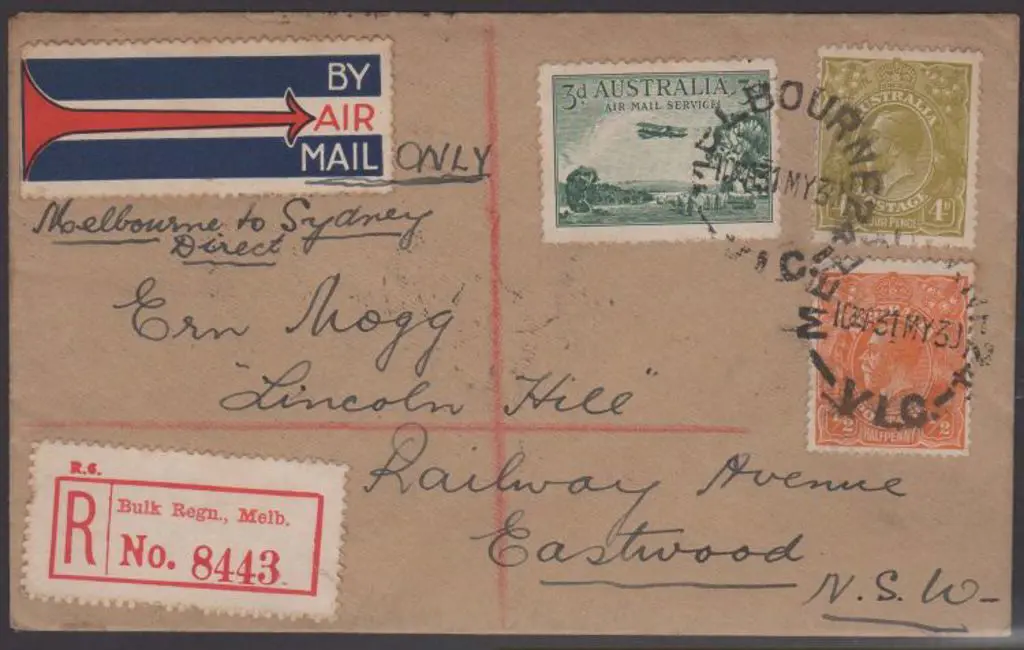 BY
AIR
MAIL ONLY
Melbourne to Sydney
Direct
3d AUSTRALIA 3d
AIR MAIL SERVICE
AUSTRALIA
POSTAGE
4d
FOUR PENCE
MELBOURNE
31 MY 30
VIC
MELBOURNE
31 MY 30
VIC
HALFPENNY
Ern Mogg
"Lincoln Hill"
Railway Avenue
Eastwood
N.S.W-
R.6.
R
Bulk Regn., Melb.
No. 8443